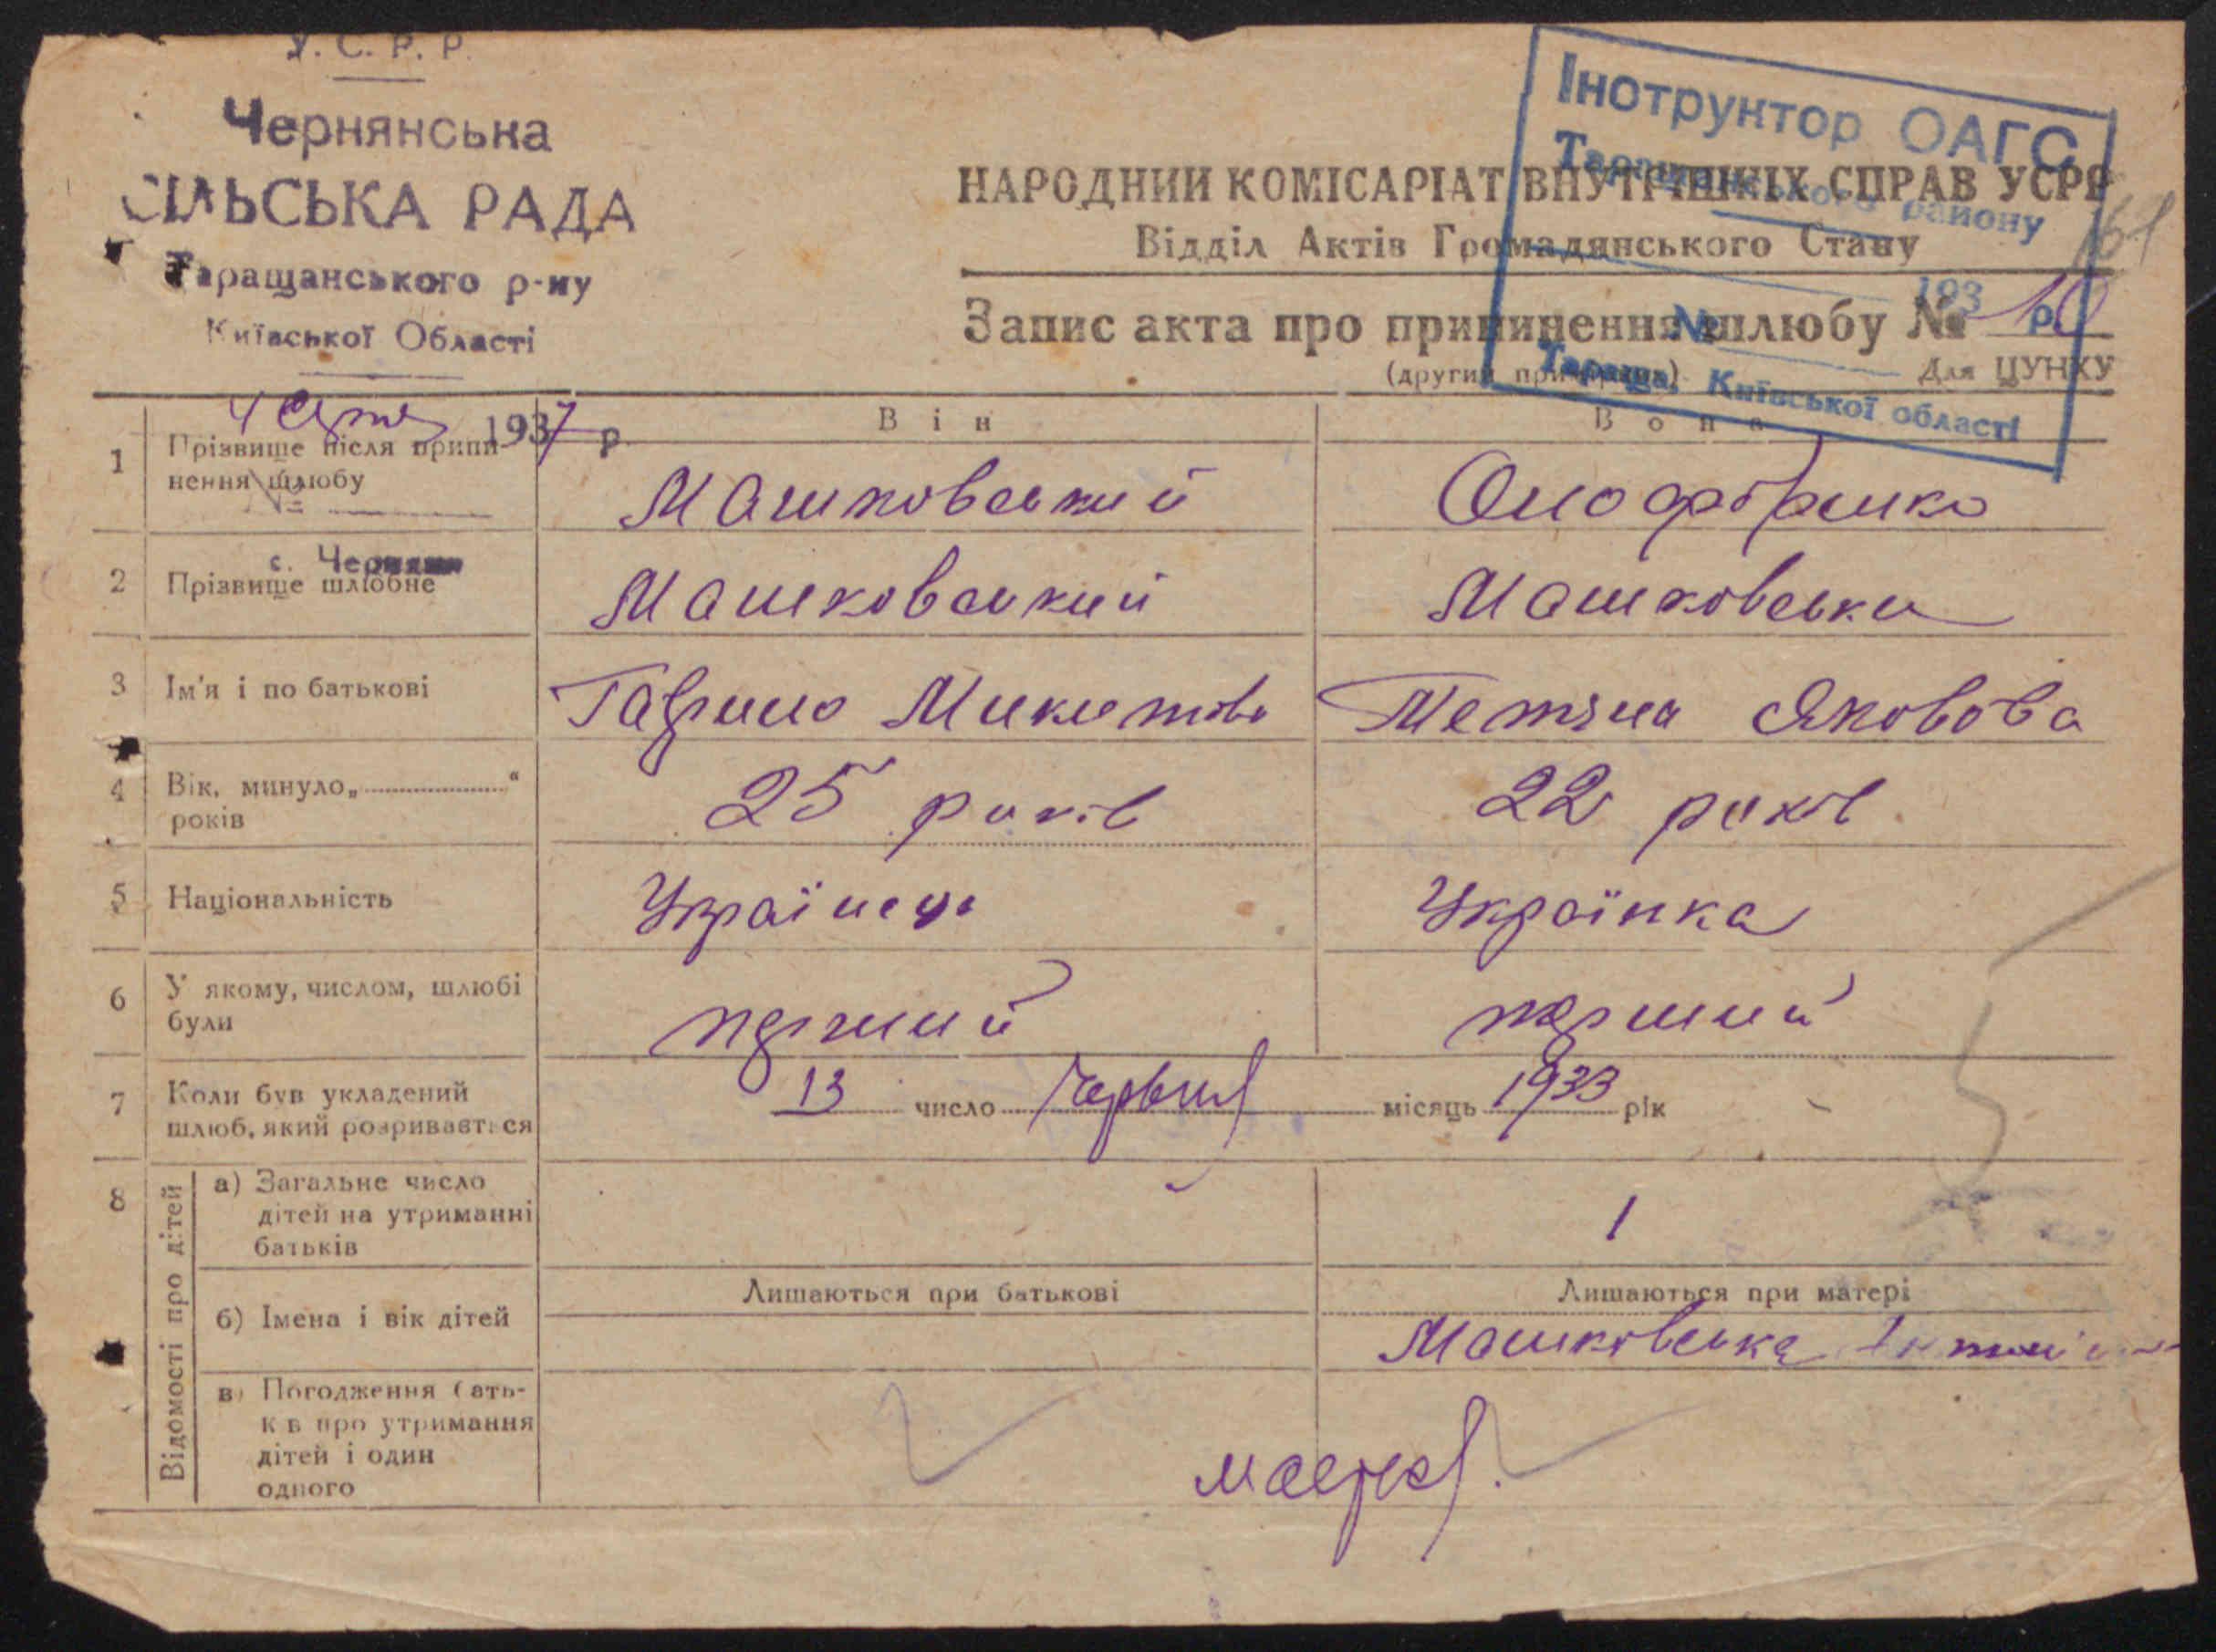 У. С. Р. Р.
Чернянська
СІЛЬСЬКА РАДА
Таращанського р-ну
Київської Області
1937 р.
№
с. Черняни
Інструктор ОАГС
Таращанського району
193 р.
№
Тараща, Київської області
161
НАРОДНИЙ КОМІСАРІАТ ВНУТРІШНІХ СПРАВ УСРР
Відділ Актів Громадянського Стану
Запис акта про припинення шлюбу № 10
(другий примірник) Для ЦУНХУ
Він Вона
1 Прізвище після припинення шлюбу Машковський Онофрієнко
2 Прізвище шлюбне Машковський Машковська
3 Ім'я і по батькові Гаврило Микитов Тетяна Яковова
4 Вік, минуло „ “ років 25 років 22 років
5 Національність Українець Українка
6 У якому, числом, шлюбі були перший перший
7 Коли був укладений шлюб, який розривається 13 число Червня місяць 1933 рік
8 Відомості про дітей
а) Загальне число дітей на утриманні батьків 1
Лишаються при батькові Лишаються при матері
б) Імена і вік дітей Машковська
в) Погодження батьків про утримання дітей і один одного